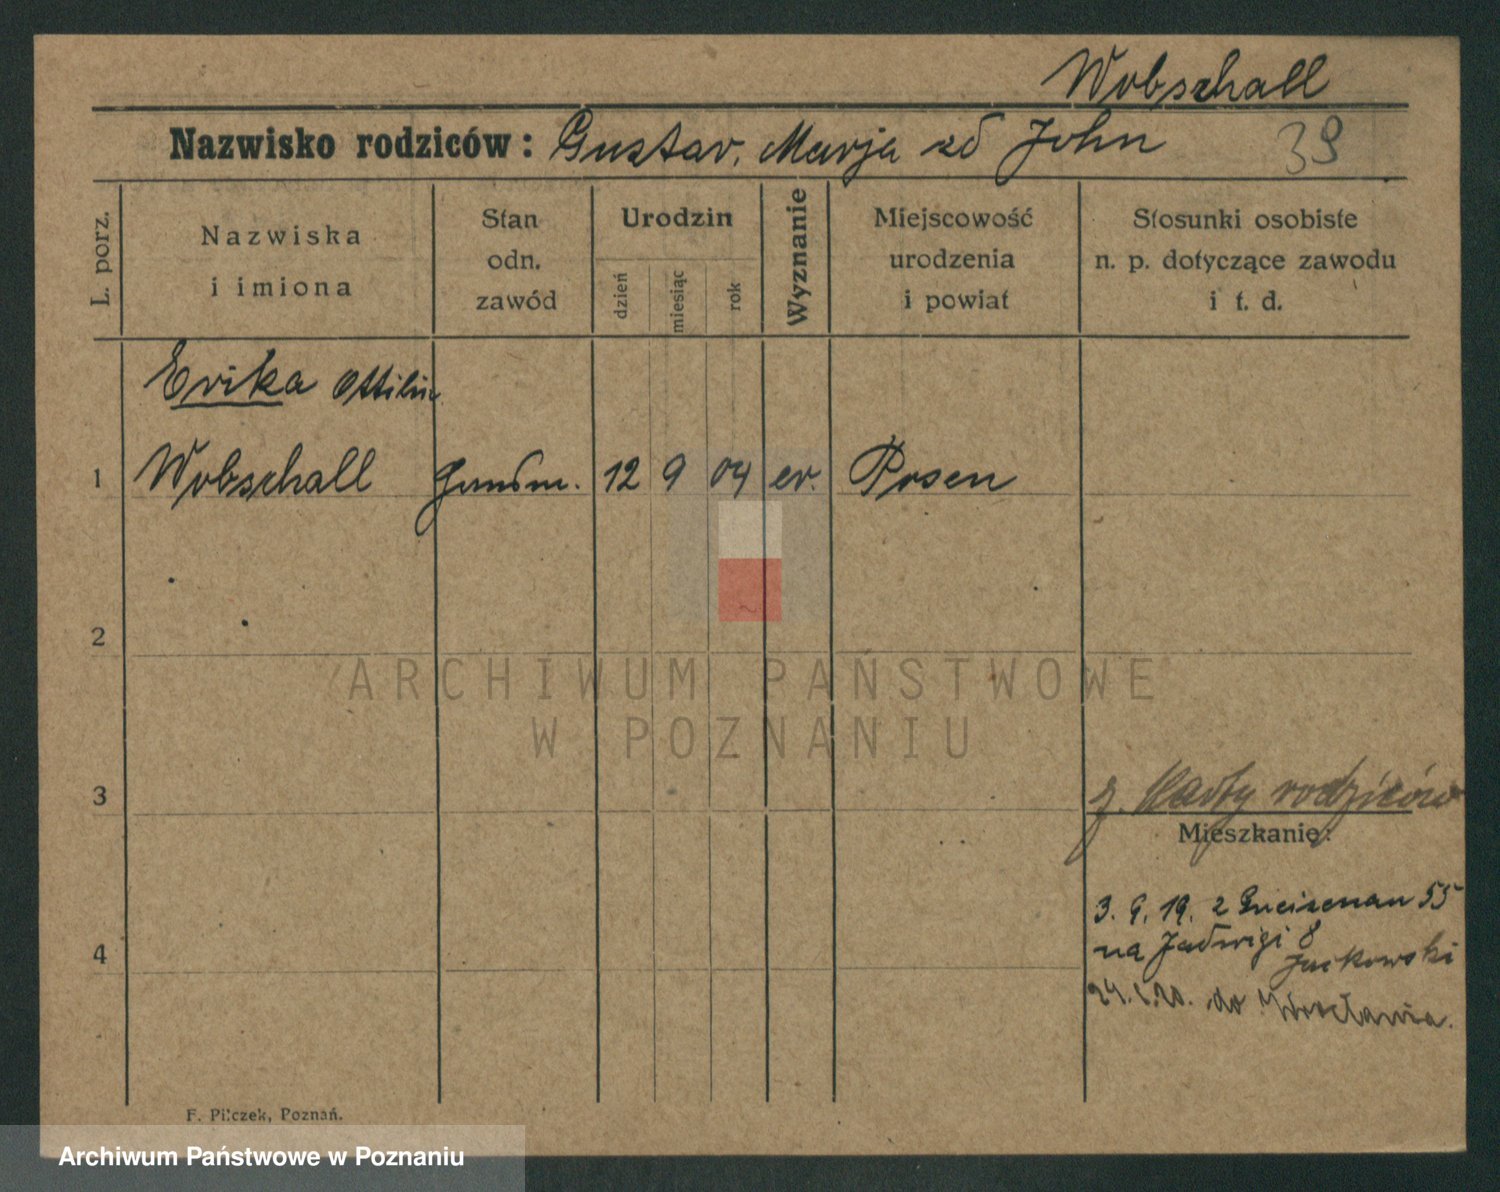 Wobschall
Nazwisko rodziców: Gustav, Marja zd John 39
L. porz.
Nazwiska
i imiona
Stan
odn.
zawód
Urodzin
dzień
miesiąc
rok
Wyznanie
Miejscowość
urodzenia
i powiat
Stosunki osobiste
n. p. dotyczące zawodu
i t. d.
Erika Ottilie
1 Wobschall 12 9 04 ev. Posen
2
ARCHIWUM PAŃSTWOWE
W POZNANIU
3 z Karty rodziców
Mieszkanie:
3. 9. 19. z Gneisenau 55
4 na Jadwigi 8
Jackowski
do Wrocławia.
F. Pilczek, Poznań.
Archiwum Państwowe w Poznaniu